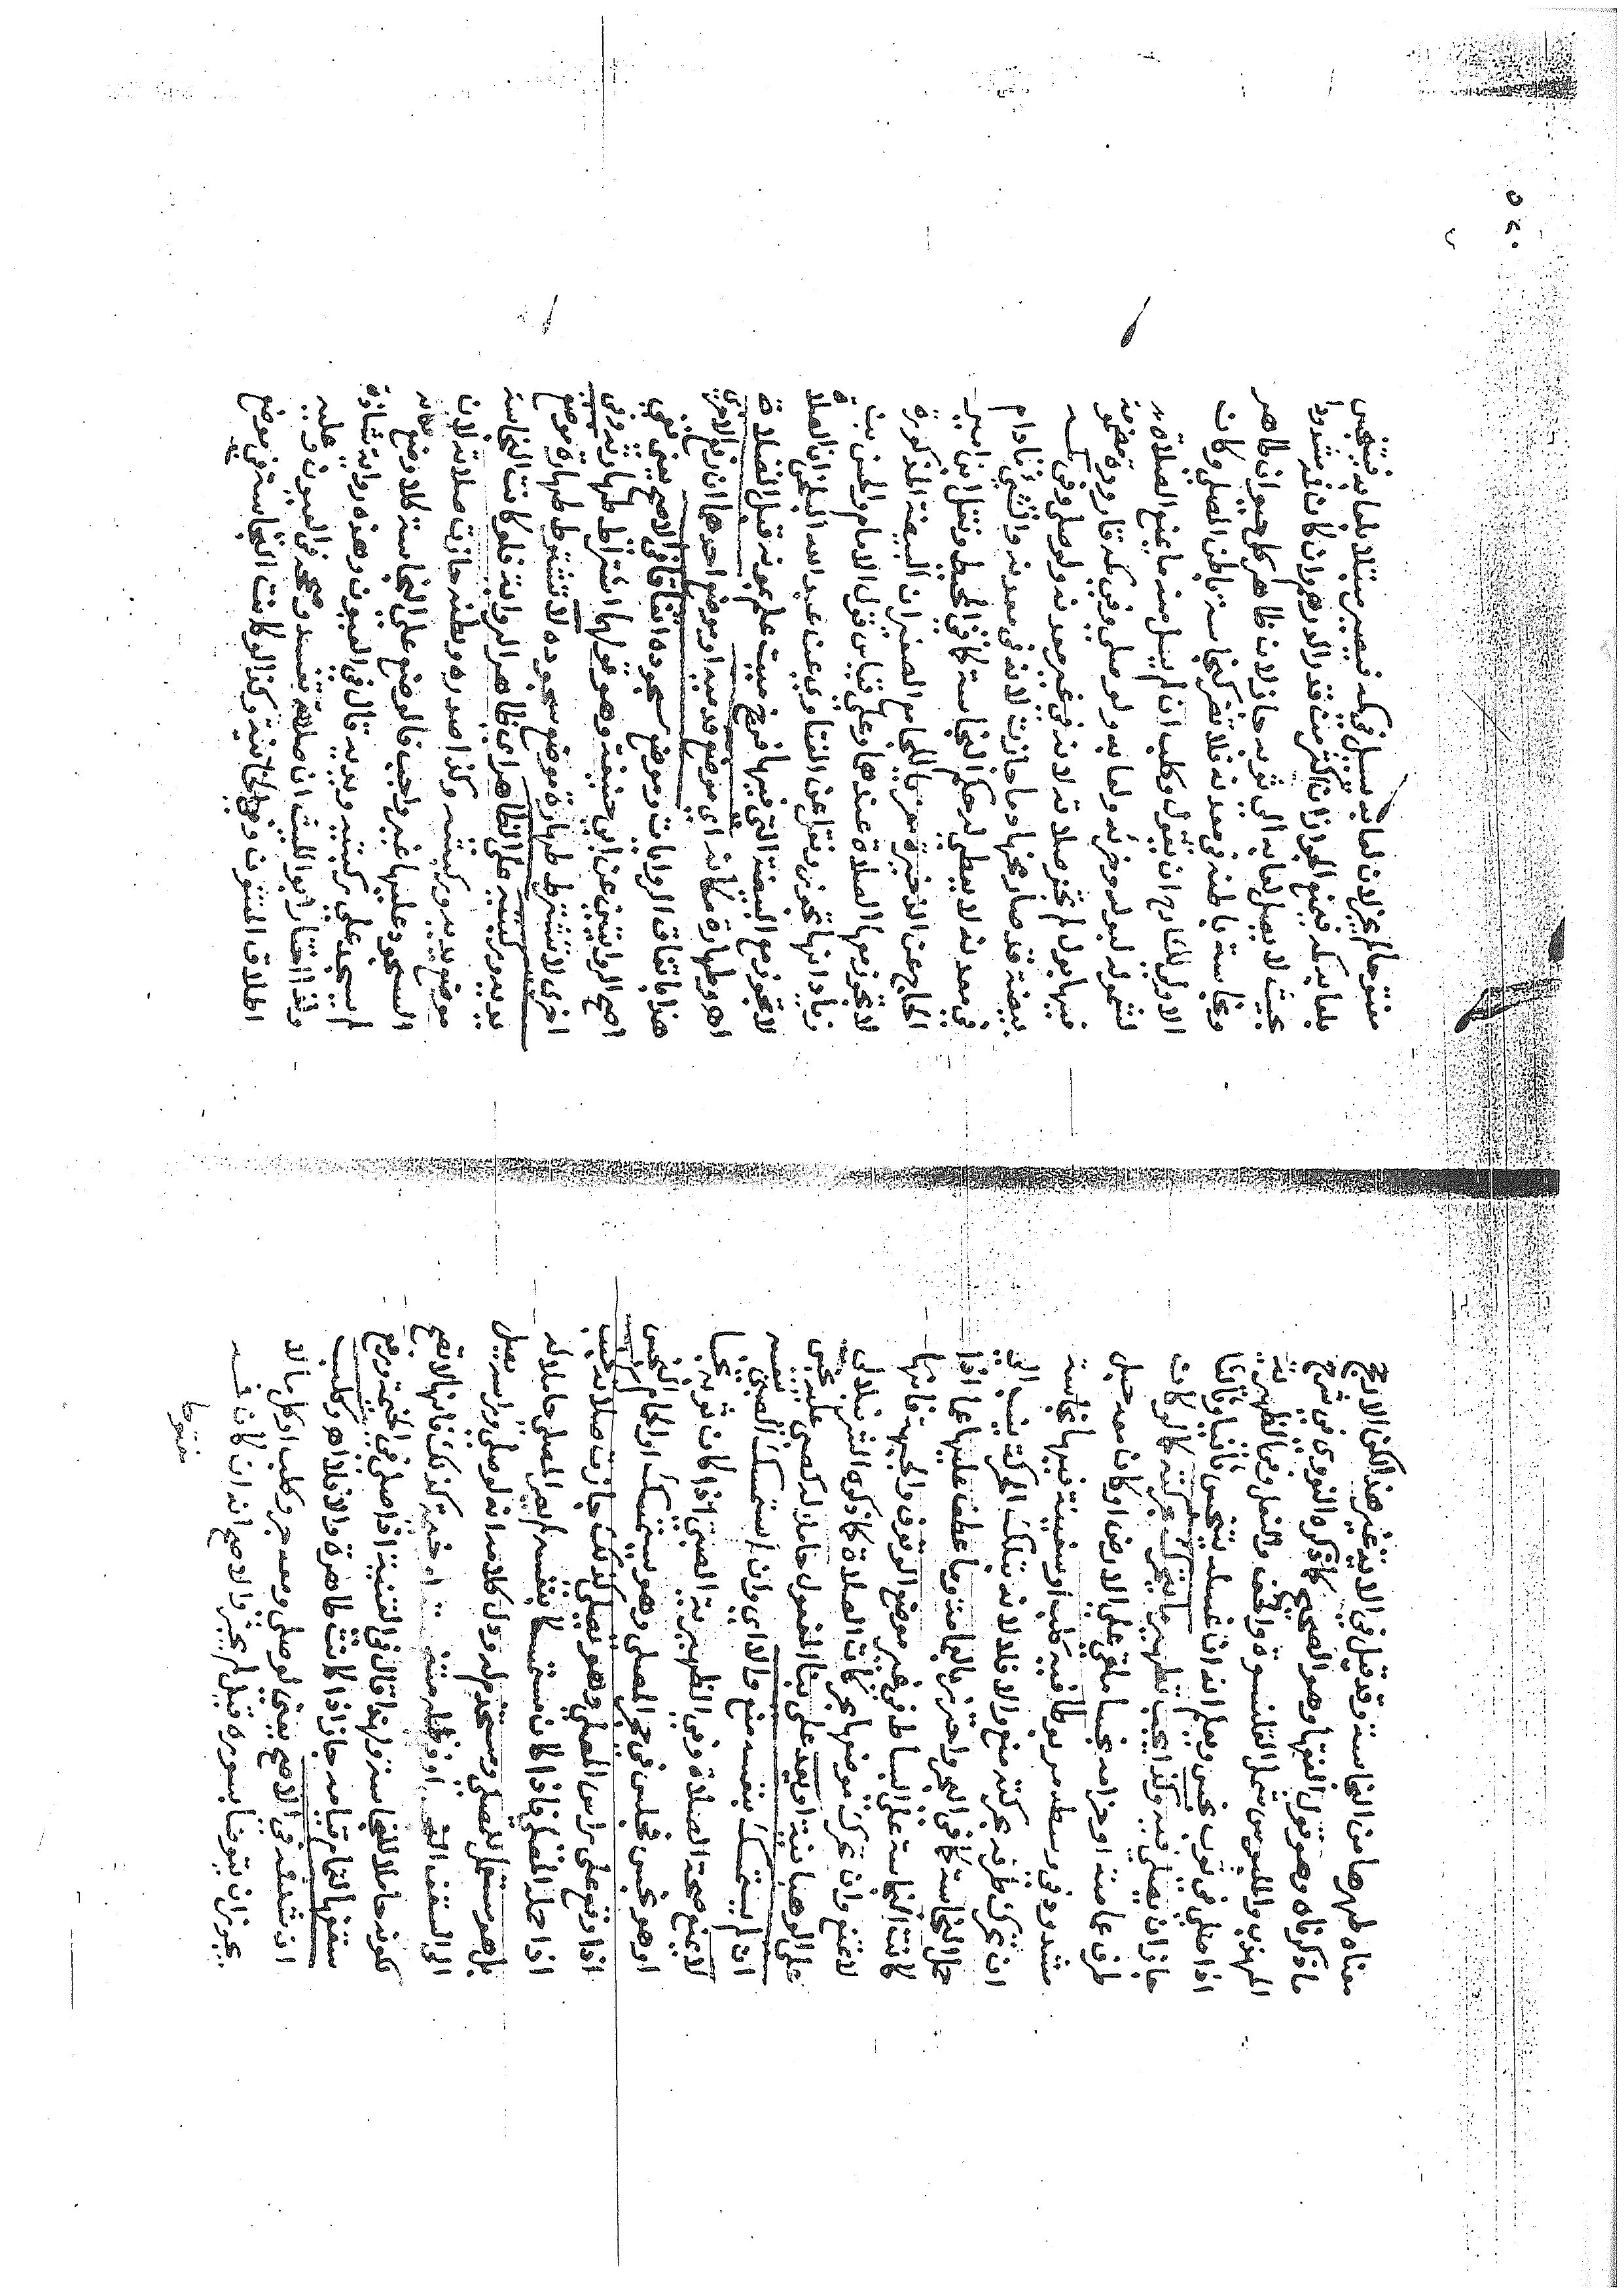 معناه طهرها من النجاسة وقد قيل في الاية غير هذا لكن الارجح
ماذكرناه وهو قول الفقها وهو الصحيح كما ذكره النووي في شرح
المهذب والملبوس يشمل القلنسوة والخف والنعل وفي الظهيرية
اذا صلى في ثوب نجس وعلم انه ان غسله يتنجس ثانيا وثالثا
جاز ان يصلي فيه وكذا يجب تطهير ما يتحرك بحركته كما لو كان
طرف عمامته او حزامه نجسا ملقى على الارض او كان معه حبل
مشدود في وسطه مربوطا فيه كلب او سفينة فيها نجاسة
ان تحرك طرفه بحركته منع والا فلا لانه بتلك الحركة ينسب الى
حمل النجاسة كما في البحر واحترز بالعمامة وما عطف عليها عما اذا
كانت النجاسة على البساط في غير موضع الوقوف والجبهة فانها
لا تمنع وان تحرك موضعها بحركات الصلاة كما ذكره الشرنبلالي
على الوهبانية او يعد على بنا المفعول حاملا له كصبي عليه نجس
ان لم يستمسك بنفسه منع والا اي وان استمسك الصبي بنفسه
لا يمنع صحة الصلاة وفي الظهيرية الصبي اذا كان ثوبه نجسا
او هو نجس فجلس في حجر المصلي وهو يستمسك او الحمام النجس
اذا وقع على راس المصلي وهو يصلي كذلك جازت صلاته كجنب
اذا حمله المصلي فاذا كان مستمسكا بنفسه لم يصر المصلي حاملا له
بل هو مستعمل للمصلي ومستخدم له ودل كلامه انه لو صلى وراسه يصل
الى السقف النجس او في كلة متنجسة او خيمة كذلك فانها لا تصح
لكونه حاملا للنجاسة ولهذا قال في القنية اذا صلى في الخيمة ورفع
سقفها لتمام قيامه جاز اذا كانت طاهرة والا فلا اهـ وكلب
ان شد فمه في الاصح يعني لو صلى ومعه جرو كلب او كل ما لا
يجوز ان يتوضا بسوره قيل لم يجز والاصح انه ان كان فمه
مفتوحا
مفتوحا لم يجز لان لعابه يسيل في كمه فيصير مبتلا بلعابه فيتنجس
بلعابه كمه فيمنع الجواز ان اكثر من قدر الدرهم وان كان فمه مشدودا
بحيث لا يصل لعابه الى ثوبه جاز لان ظاهر كل حيوان طاهر
ونجاسة باطنه في معدنه فلا تظهر كنجاسة باطن المصلي وكان
الاولى للشارح ان يقول وكلب ان لم يسل منه ما يمنع الصلاة به
لشموله لبوله وخرئه ولعابه ولو صلى وفي كمه قارورة مضمومة
فيها بول لم تجز صلاته لانه في غير معدنه ولو صلى وفي كمه
بيضة قد صار مخها دما جازت لانه في معدنه والشئ مادام
في معدنه لا يعطى له حكم النجاسة كما في المحيط ونقل ابن امير
الحاج عن الذخيرة معزيا للجامع الصغير ان البيضة المذكورة
لا تجوز معها الصلاة عندهما وعلى قياس قول الامام والحسن بن
زياد انها تجوز ونقل عن الفتاوى عن عبد الله البلخي ان الصلاة
لا تجوز مع البيضة التي فيها فرخ ميت علم بموته قبل الصلاة
اهـ وطهارة مكانه اي موضع قدميه او موضع احدهما ان رفع الاخرى
هذا باتفاق الروايات وموضع سجوده اتفاقا في الاصح يعني في
اصح الروايتين عن ابي حنيفة وهو قولهما اشتراط طهارته وفي
اخرى لا تشترط طهارة موضع سجوده لا تشترط طهارة موضع
يديه وركبتيه على الظاهر اي ظاهر الرواية فلو كانت النجاسة
موضع يديه وركبتيه وكذا صدره وبطنه جازت صلاته لان
السجود عليها غير واجب فالوضع على النجاسة كلا وضع فكانه
لم يسجد على ركبتيه ويديه قال في العيون وهذه رواية شاذة
ولذا اختار ابو الليث ان صلاته تفسد وصححه في العيون وعليه
اطلاق المتون وفي الخانية وكذا لو كانت النجاسة في موضع